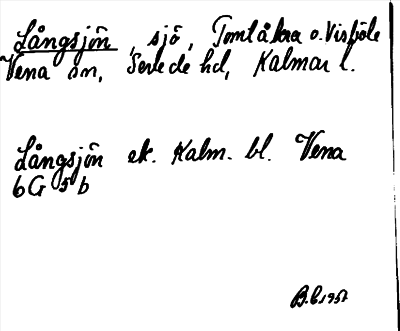 Långsjön, sjö, Tomtåkra o. Visböle
Vena sn, Sevede hd, Kalmar l.
Långsjön ek. Kalm. bl. Vena
6G 5b
B.C 1957